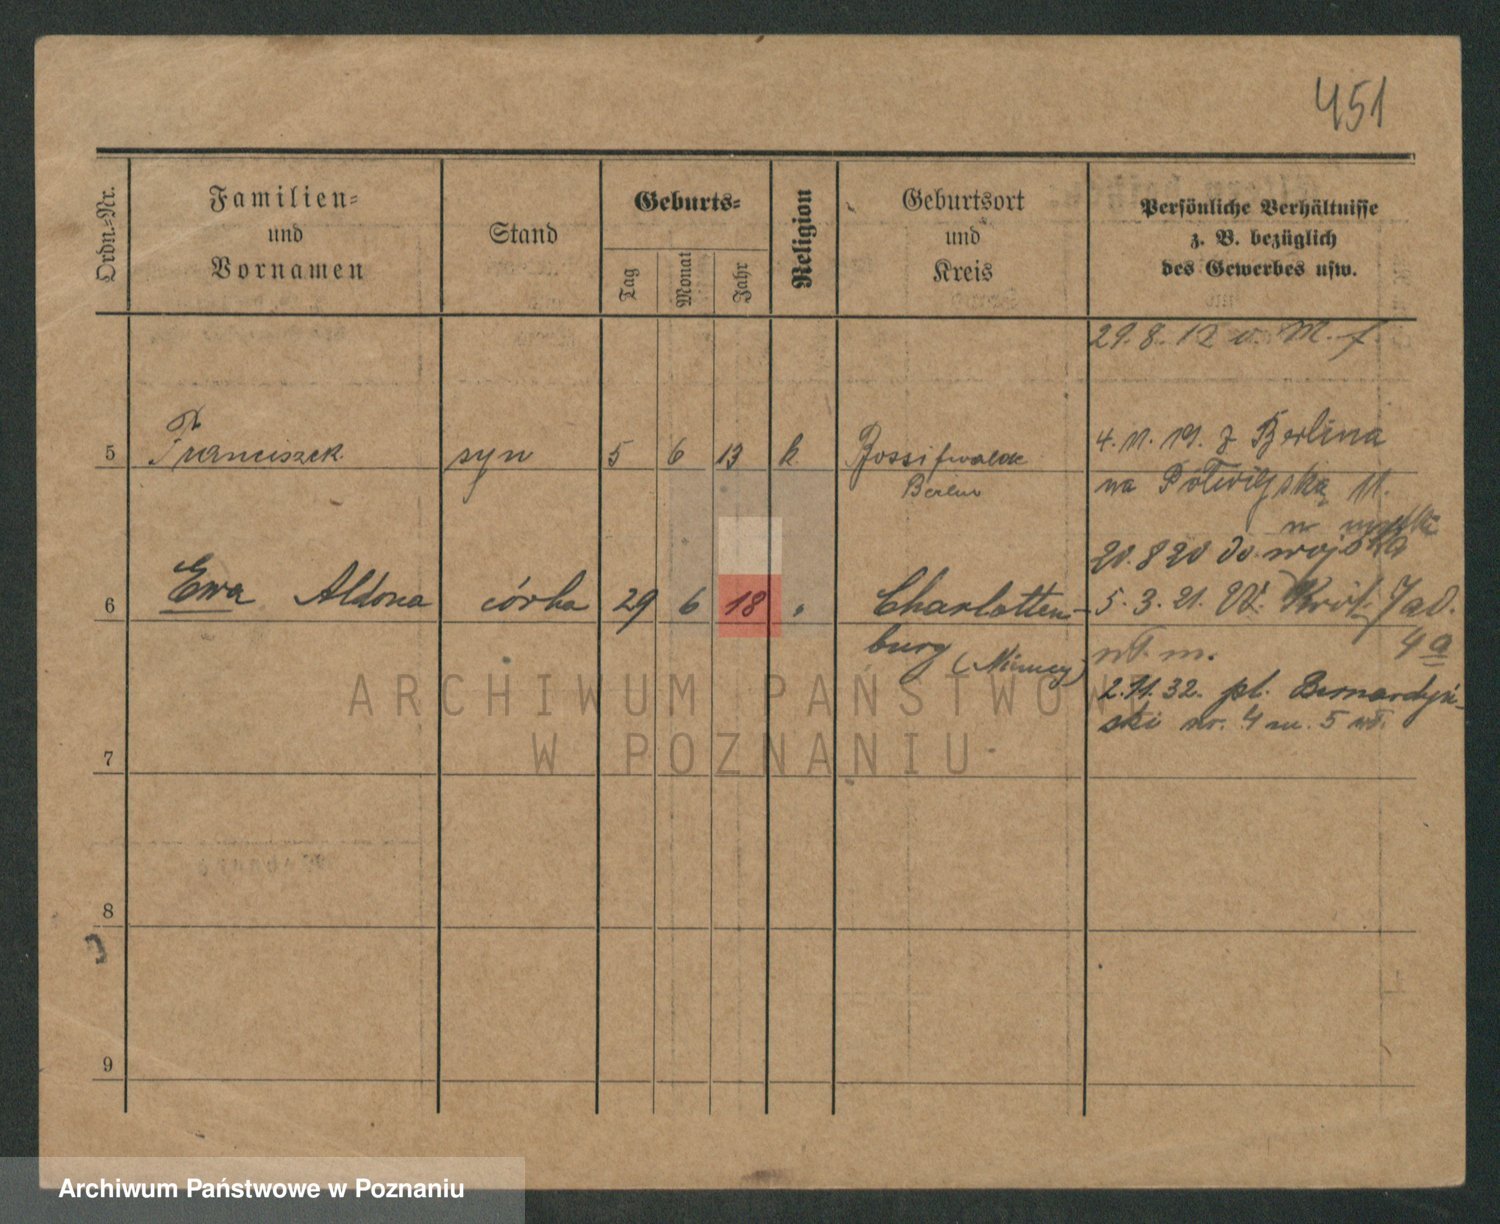 451
Ordn.-Nr.
Familien-
und
Vornamen
Stand
Geburts-
Tag
Monat
Jahr
Religion
Geburtsort
und
Kreis
Persönliche Verhältnisse
z. B. bezüglich
des Gewerbes usw.
29. 8. 12 v. M. f.
5 Franciszek syn 5 6 13 k. 4. 11. 19. z Berlina
Berlin na 11.
20. 8 20 do wojska
6 Ewa Aldona córka 29 6 18 " Charlotten- 5. 3. 21. Król. Jad.
burg (Niemcy) 4a
2. 11. 32. pl. Bernardyń-
ski nr. 4 m. 5
ARCHIWUM PAŃSTWOWE
W POZNANIU
7
8
9
Archiwum Państwowe w Poznaniu